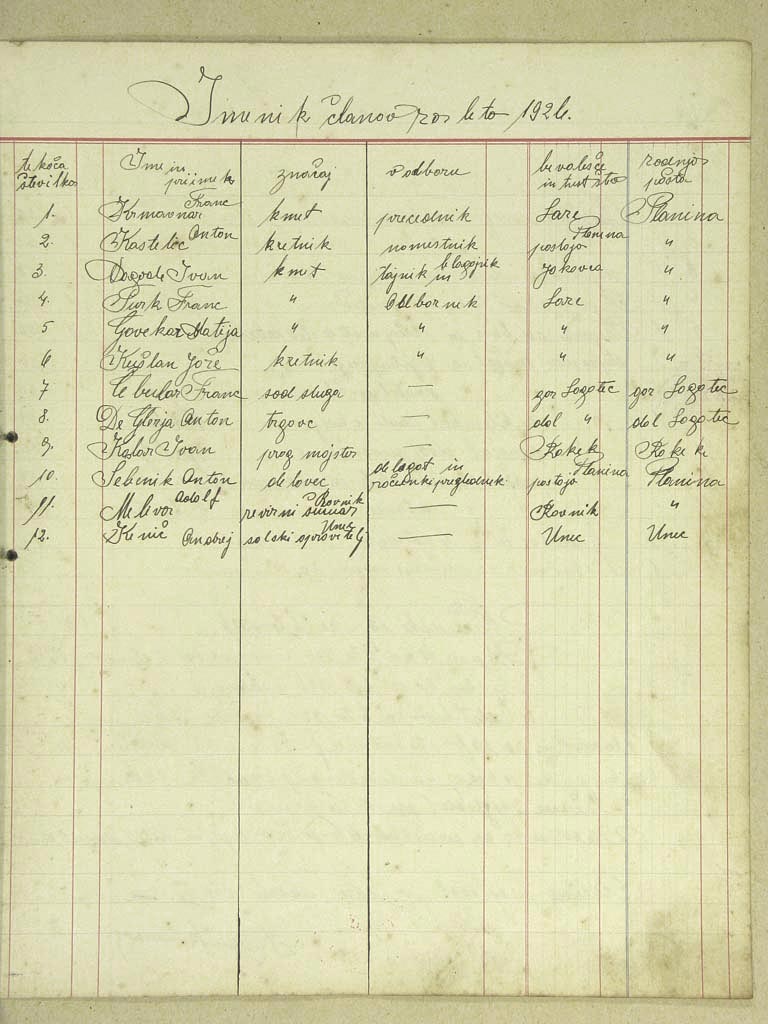 Imenik članov za leto 1926.
tekoča številka Ime in priimek značaj v odboru bivališče zadnja pošta
1. Krmavnar Franc kmet precednik Laze Planina
2. Kastelic Anton kretnik nomestnik postaja Planina "
3. Ivan kmet tajnik in blagajnik Jakovca "
4. Turk Franc " Odbornik Laze "
5 Govekar Matija " " " "
6 Kušlan Jože kretnik " " "
7 Cebular Franc sod sluga — gor Logatec gor Logatec
8. De Glerja Anton trgovc — dol " dol Logatec
9. Ivan prog mojster — Rakek Rakek
10. Sebenik Anton delovec delegat in računski preglednik postaja Planina Planina
11. Adolf revirni Ravnik — Ravnik "
12. Andrej Unec — Unec Unec